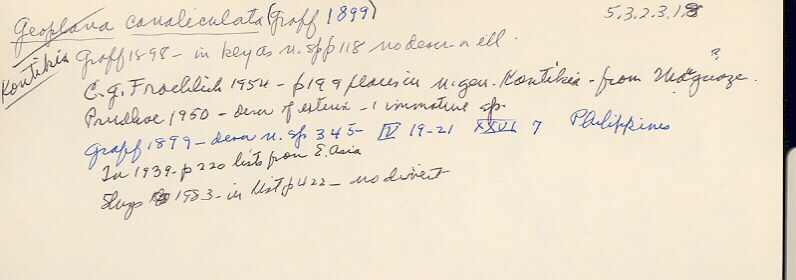 Geoplana canaliculata (Graff 1899) 5.3.2.3.1.8
Kontikia Graff 1898 - in key as n. sp p 118 no descr n ill.
C.g. Froehlich 1954 - p 199 places in n. gen. Kontikia - from ?
Prudhoe 1950 - descr of exterior - 1 immature sp.
Graff 1899 - descr n. sp 345 - IV 19-21 XXVI 7 Philippines
In 1939 - p 220 lists from E. Asia
1983 - in list p 422 - no divert